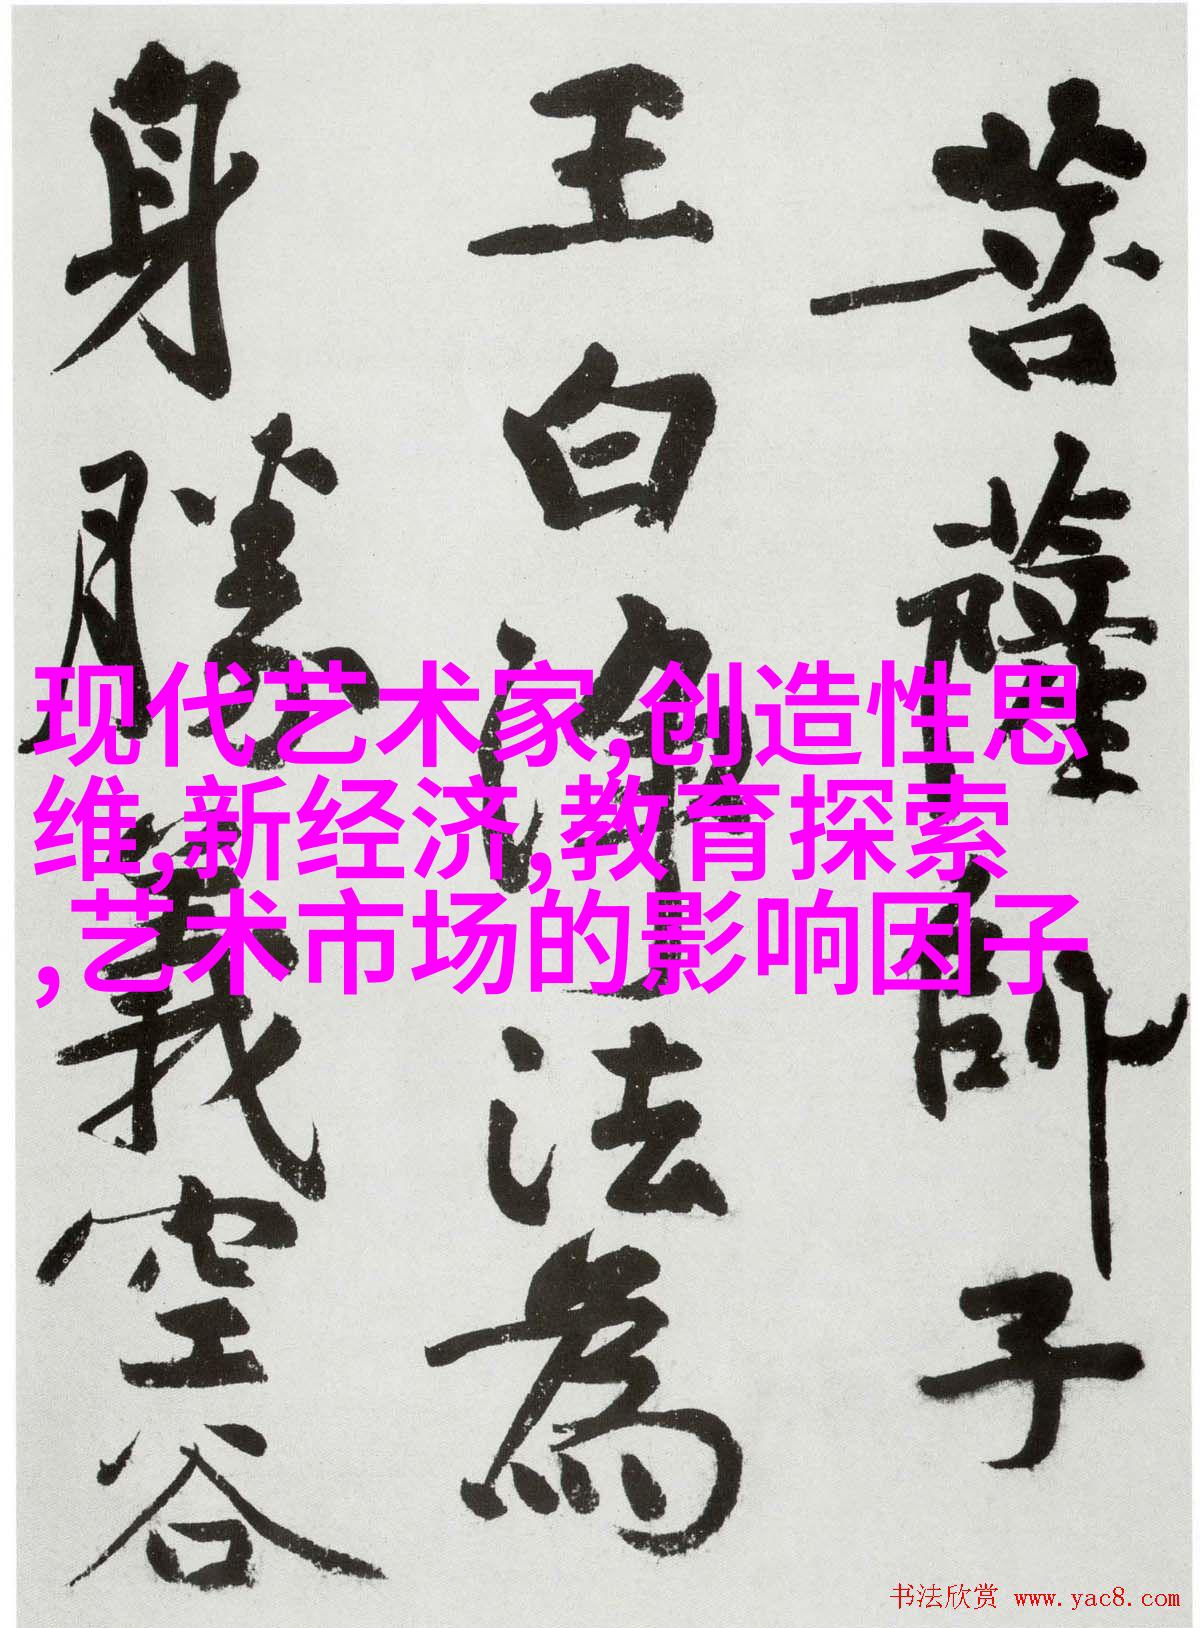 菩薩師子
王白淨法為
身勝義空谷
现代艺术家,创造性思
维,新经济,教育探索
,艺术市场的影响因子
书法欣赏 www.yac8.com